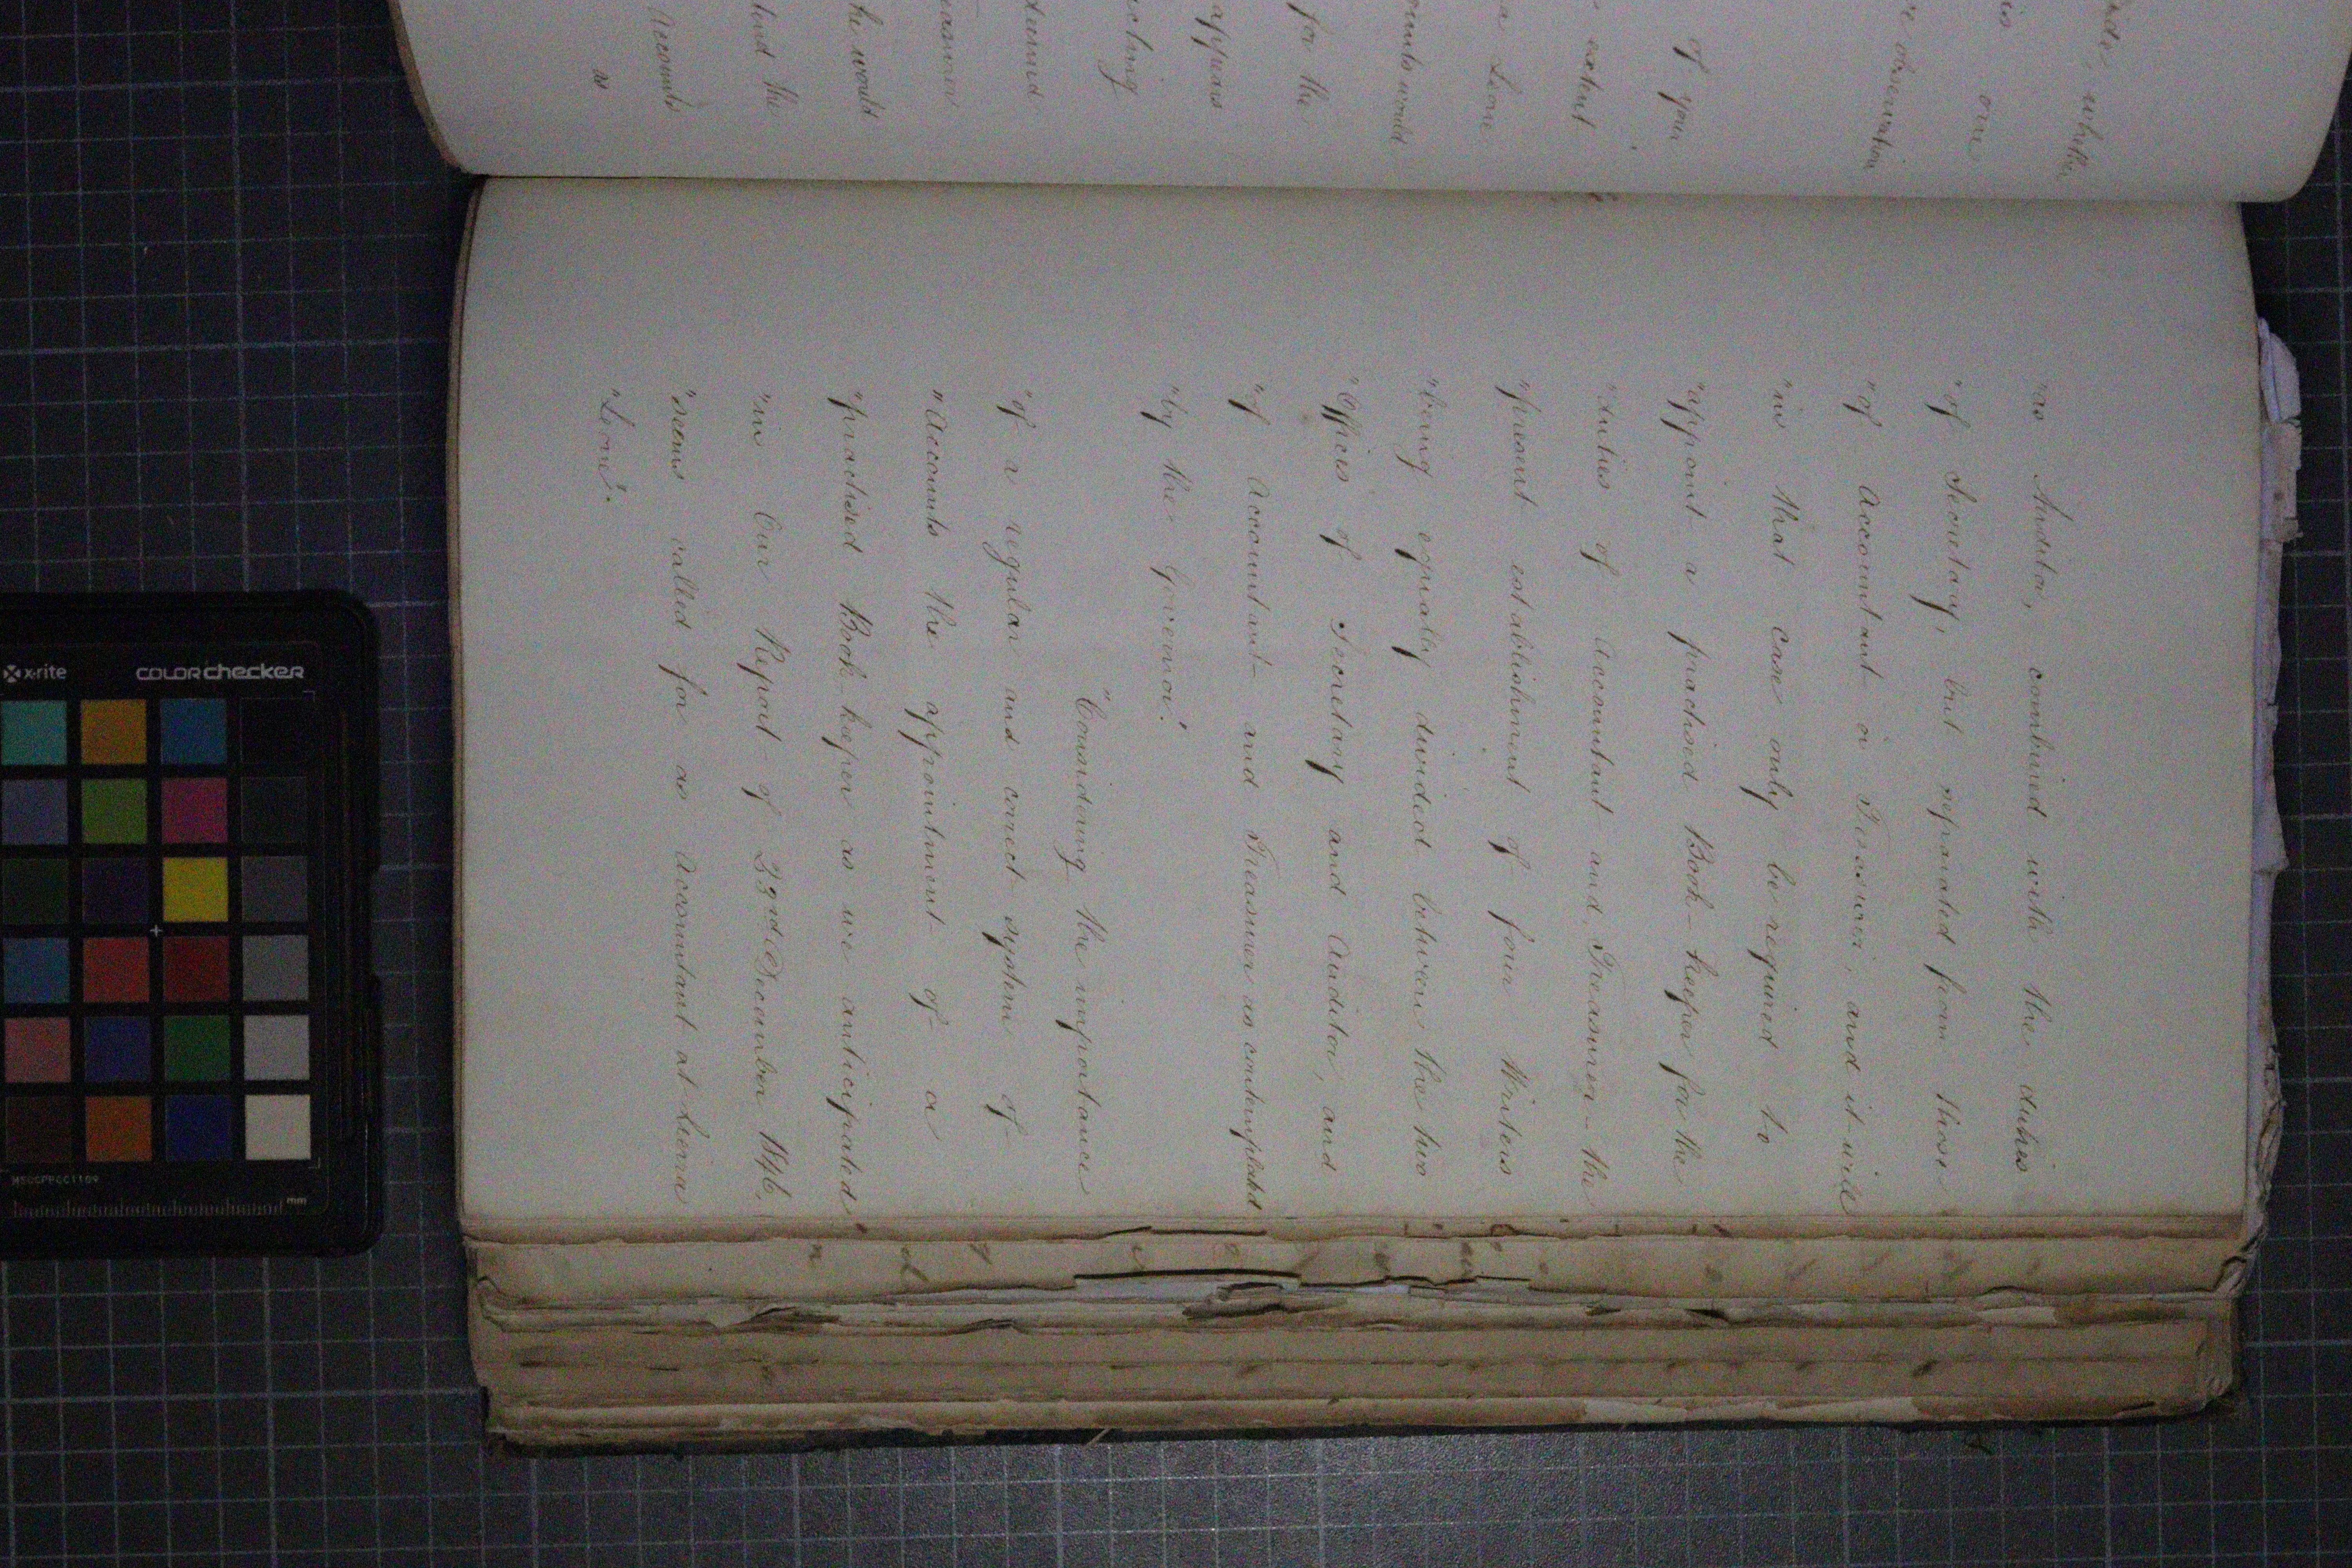 "as Auditor, combined with the duties
"of Secretary, but separated from those
"of Accountant or Treasurer, and it will
"in that case only be required to
"appoint a practised Book-keeper for the
"duties of Accountant and Treasurer – the
"present establishment of four Writers
"being equally divided between the two
"Offices of Secretary and Auditor, and
"of Accountant and Treasurer as contemplated
"by the Governor."
"Considering the importance
"of a regular and correct system of
"Accounts the appointment of a
"practised Book-keeper as we anticipated
"in Our Report of 23rd December 1846.
"seems called for as Accountant at Sierra
"Leone".
whether
is own
observation
of your
extent
a Leone
would
for the
appears
acting
he would
the
Accounts
as
x-rite
COLORchecker
MSCCPPCC1109
mm